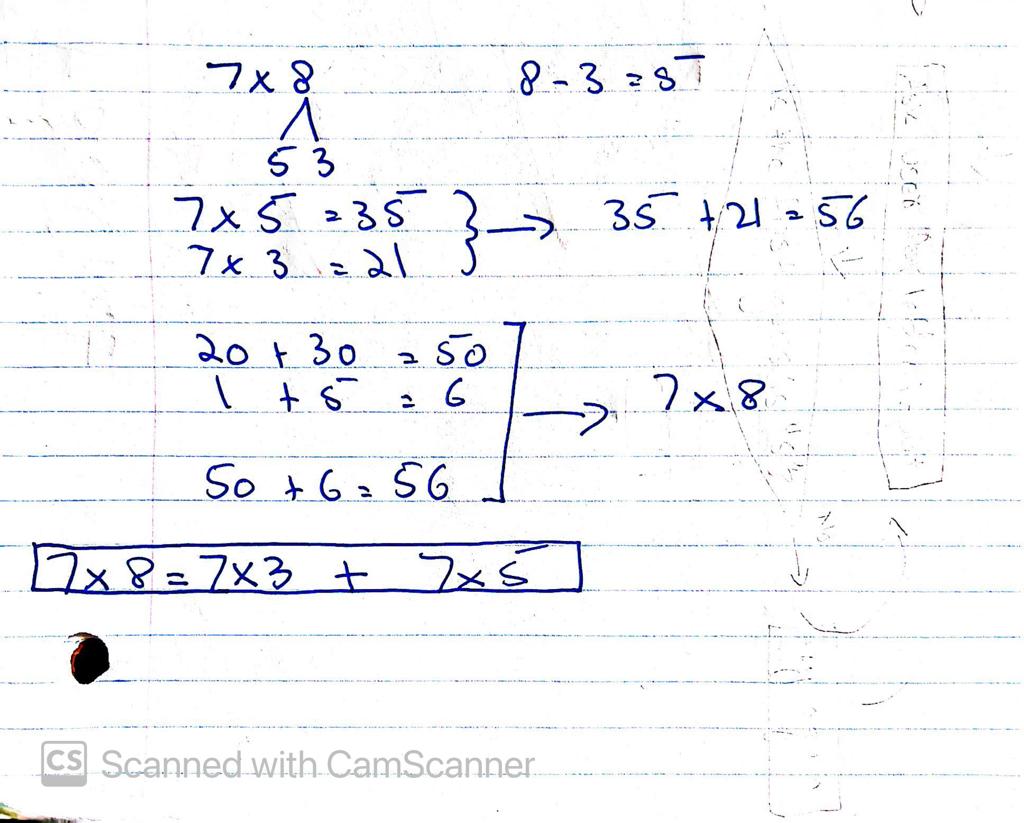 7 x 8 8 - 3 = 5
5 3
7 x 5 = 35 } → 35 + 21 = 56
7 x 3 = 21
20 + 30 = 50
1 + 5 = 6 → 7 x 8
50 + 6 = 56
7 x 8 = 7 x 3 + 7 x 5
CS Scanned with CamScanner